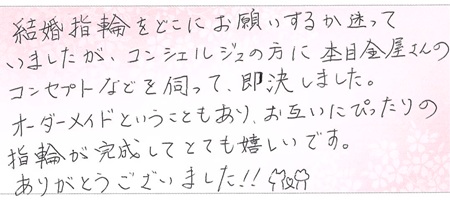 結婚指輪をどこにお願いするか迷って
いましたが、コンシェルジュの方に杢目金屋さんの
コンセプトなどを伺って、即決しました。
オーダーメイドということもあり、お互いにぴったりの
指輪が完成してとても嬉しいです。
ありがとうございました!!